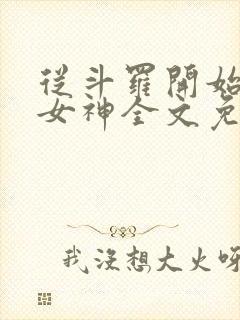 從斗羅開始
女神全文免
我沒想大火呀